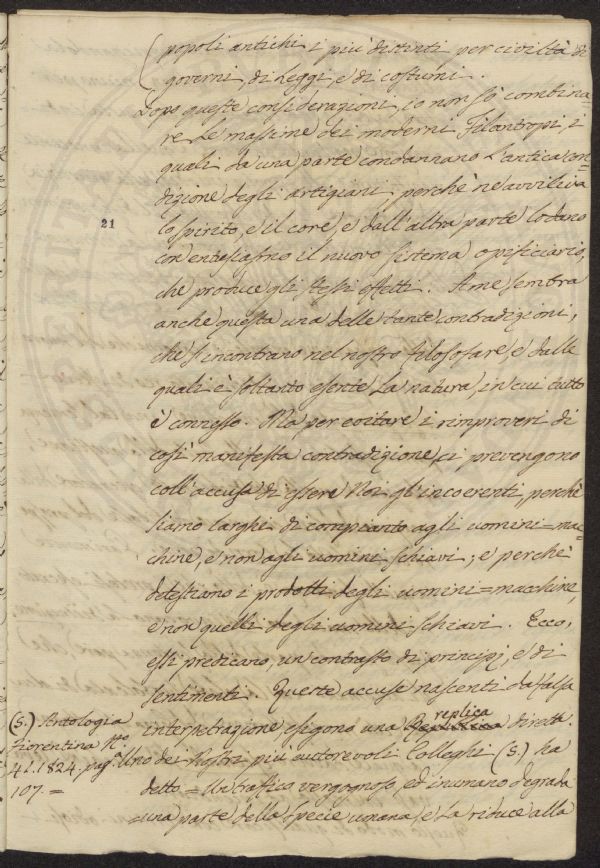 popoli antichi i più distinti per civiltà di
governi, di leggi, e di costumi.
Dopo queste considerazioni, io non sò combina-
re le massime dei moderni Filantropi, i
quali da una parte condannano l'antica con=
dizione degli artigiani, perchè ne avviliva
lo spirito, e il core, e dall'altra parte lodano
con entusiasmo il nuovo sistema opificiario,
che produce gli stessi effetti. A me sembra
anche questa una delle tante contradizioni,
che s'incontrano nel nostro filosofare, e dalle
quali è soltanto esente la natura, in cui tutto
è connesso. Ma per evitare i rimproveri di
così manifesta contradizione, ci prevengono
coll'accusa di essere Noi gl'incoerenti, perchè
siamo larghi di compianto agli uomini=mac=
chine, e non agli uomini schiavi; e perchè
detestiamo i prodotti degli uomini=macchine,
e non quelli degli uomini schiavi. Ecco,
essi predicano, un contrasto di principj, e di
sentimenti. Queste accuse nascenti da falsa
interpetrazione esigono una replica diretta.
Uno dei Nostri più autorevoli Colleghi (s.) ha
detto = Un traffico vergognoso, ed inumano degrada
=una parte della specie umana, e la riduce alla
21
(s.) Antologia
Fiorentina N.o
41. 1824. pag.
107. =